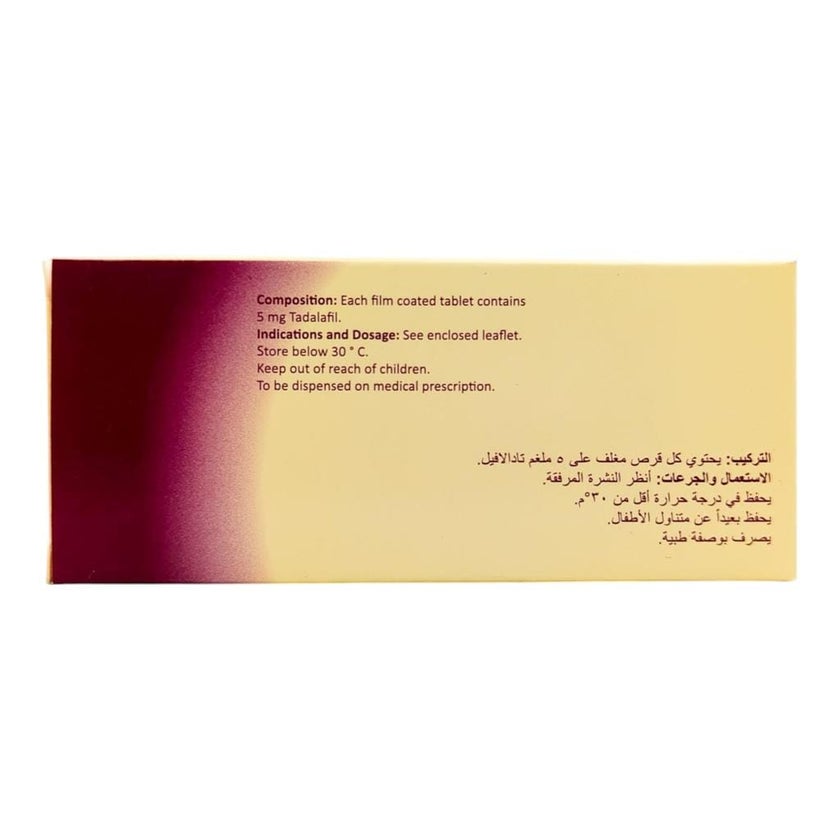 Composition: Each film coated tablet contains
5 mg Tadalafil.
Indications and Dosage: See enclosed leaflet.
Store below 30 ° C.
Keep out of reach of children.
To be dispensed on medical prescription.
التركيب: يحتوي كل قرص مغلف على ٥ ملغم تادالافيل.
الاستعمال والجرعات: أنظر النشرة المرفقة.
يحفظ في درجة حرارة أقل من ٣٠°م.
يحفظ بعيداً عن متناول الأطفال.
يصرف بوصفة طبية.